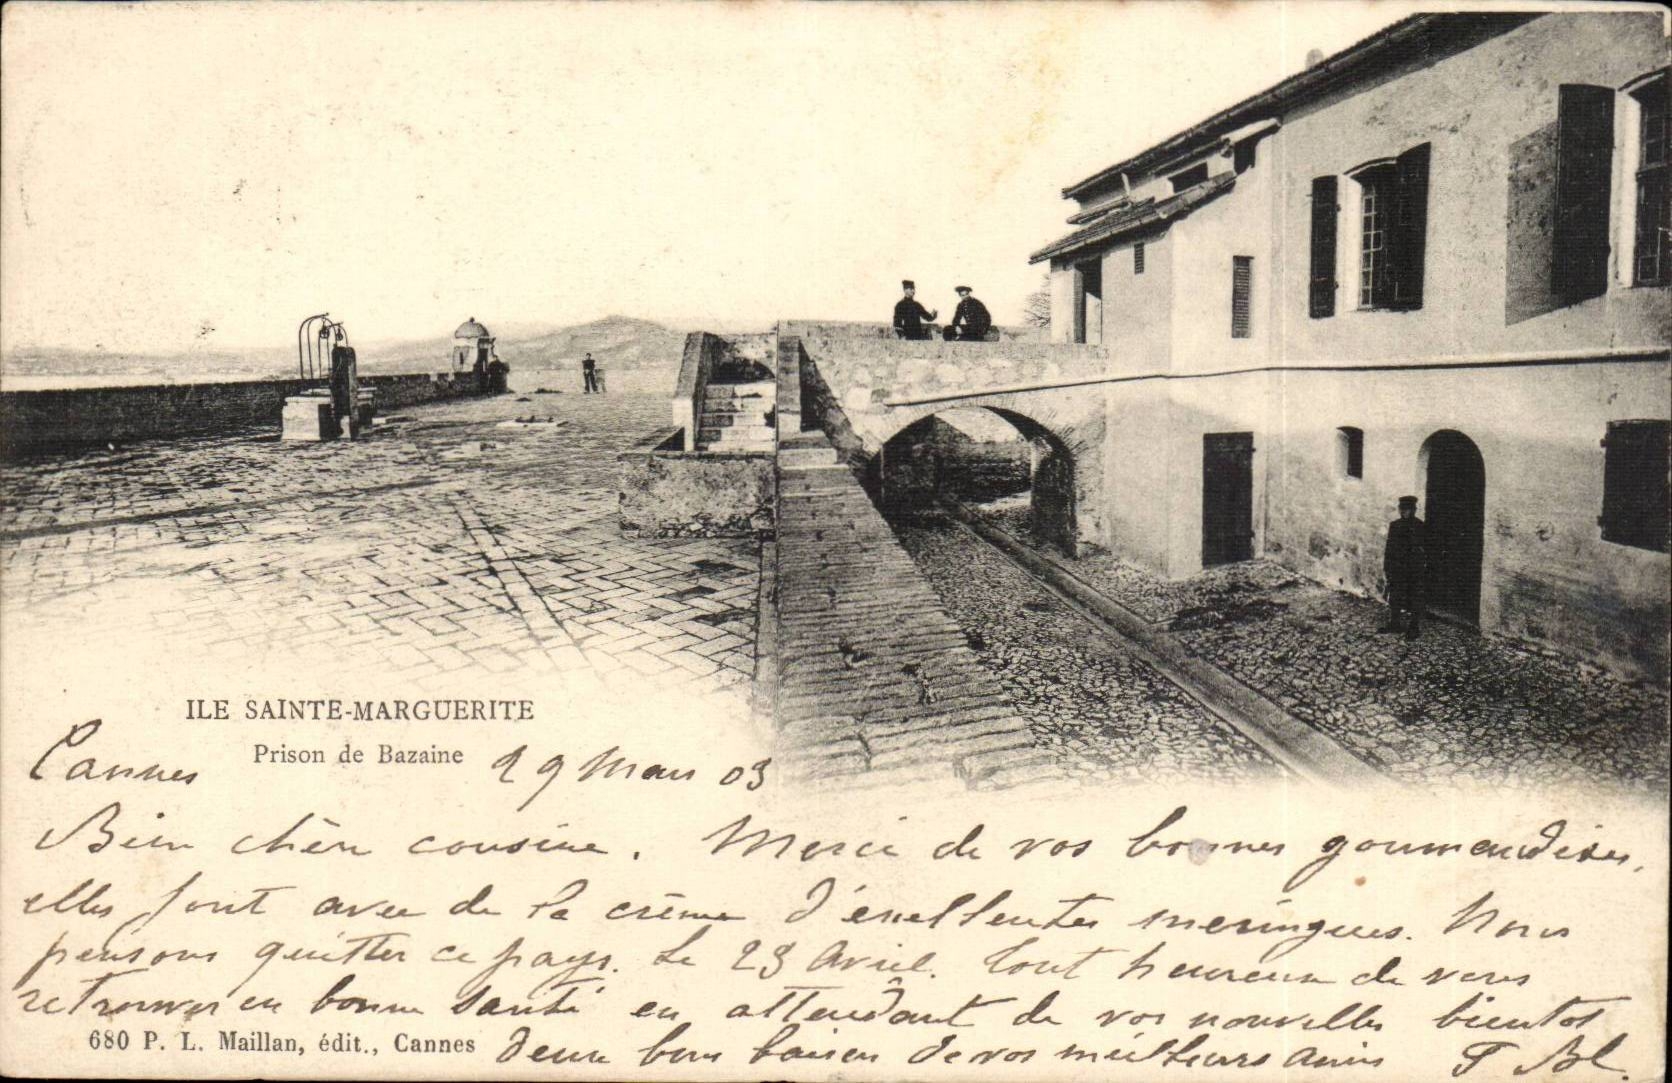 ILE SAINTE-MARGUERITE
Prison de Bazaine
Cannes 29 Mars 03
Bien chère cousine. Merci de vos bonnes gourmandises,
elles font avec de la crème d'éxellentes meringues. Nous
pensons quitter ce pays. Le 23 Avril. Tout heureux de vous
retrouver en bonne santé en attendant de vos nouvelles bientot
680 P. L. Maillan, édit., Cannes
deux bons baisers de vos meilleurs amis